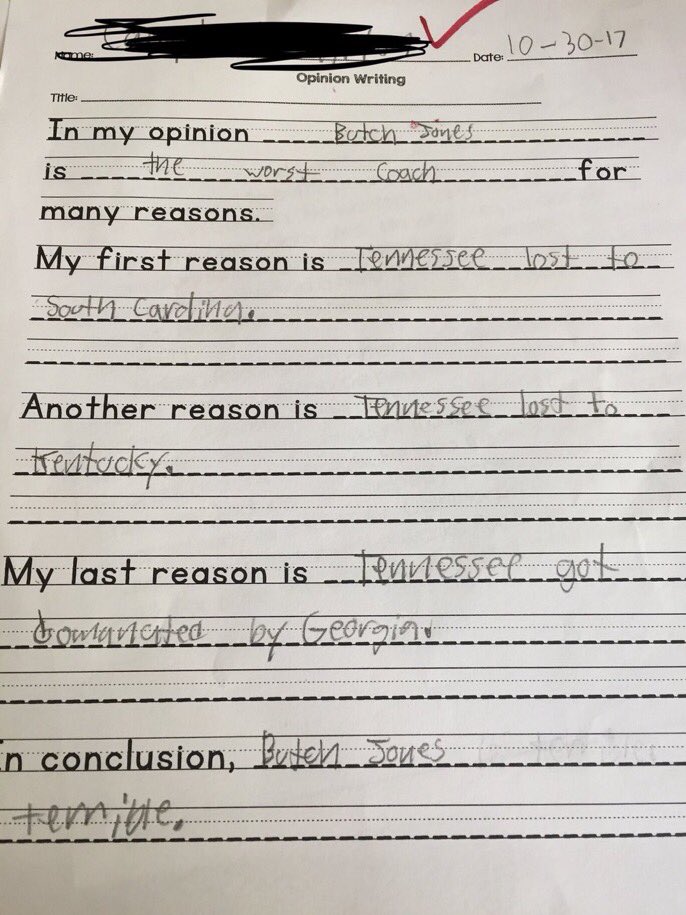 Name: Date: 10-30-17
Opinion Writing
Title:
In my opinion Butch Jones
is the worst Coach for
many reasons.
My first reason is Tennessee lost to
South Carolina.
Another reason is Tennessee lost to
Kentucky.
My last reason is Tennessee got
domanated by Georgia.
In conclusion, Butch Jones
terrible.